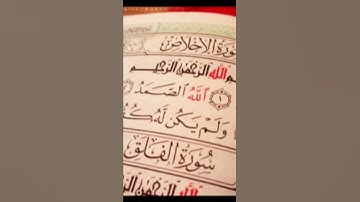 سورة الإخلاص
الله الرحمن الرحيم
١ الله الصمد
ولم يكن له
سورة الفلق
الله الرحمن الرحيم